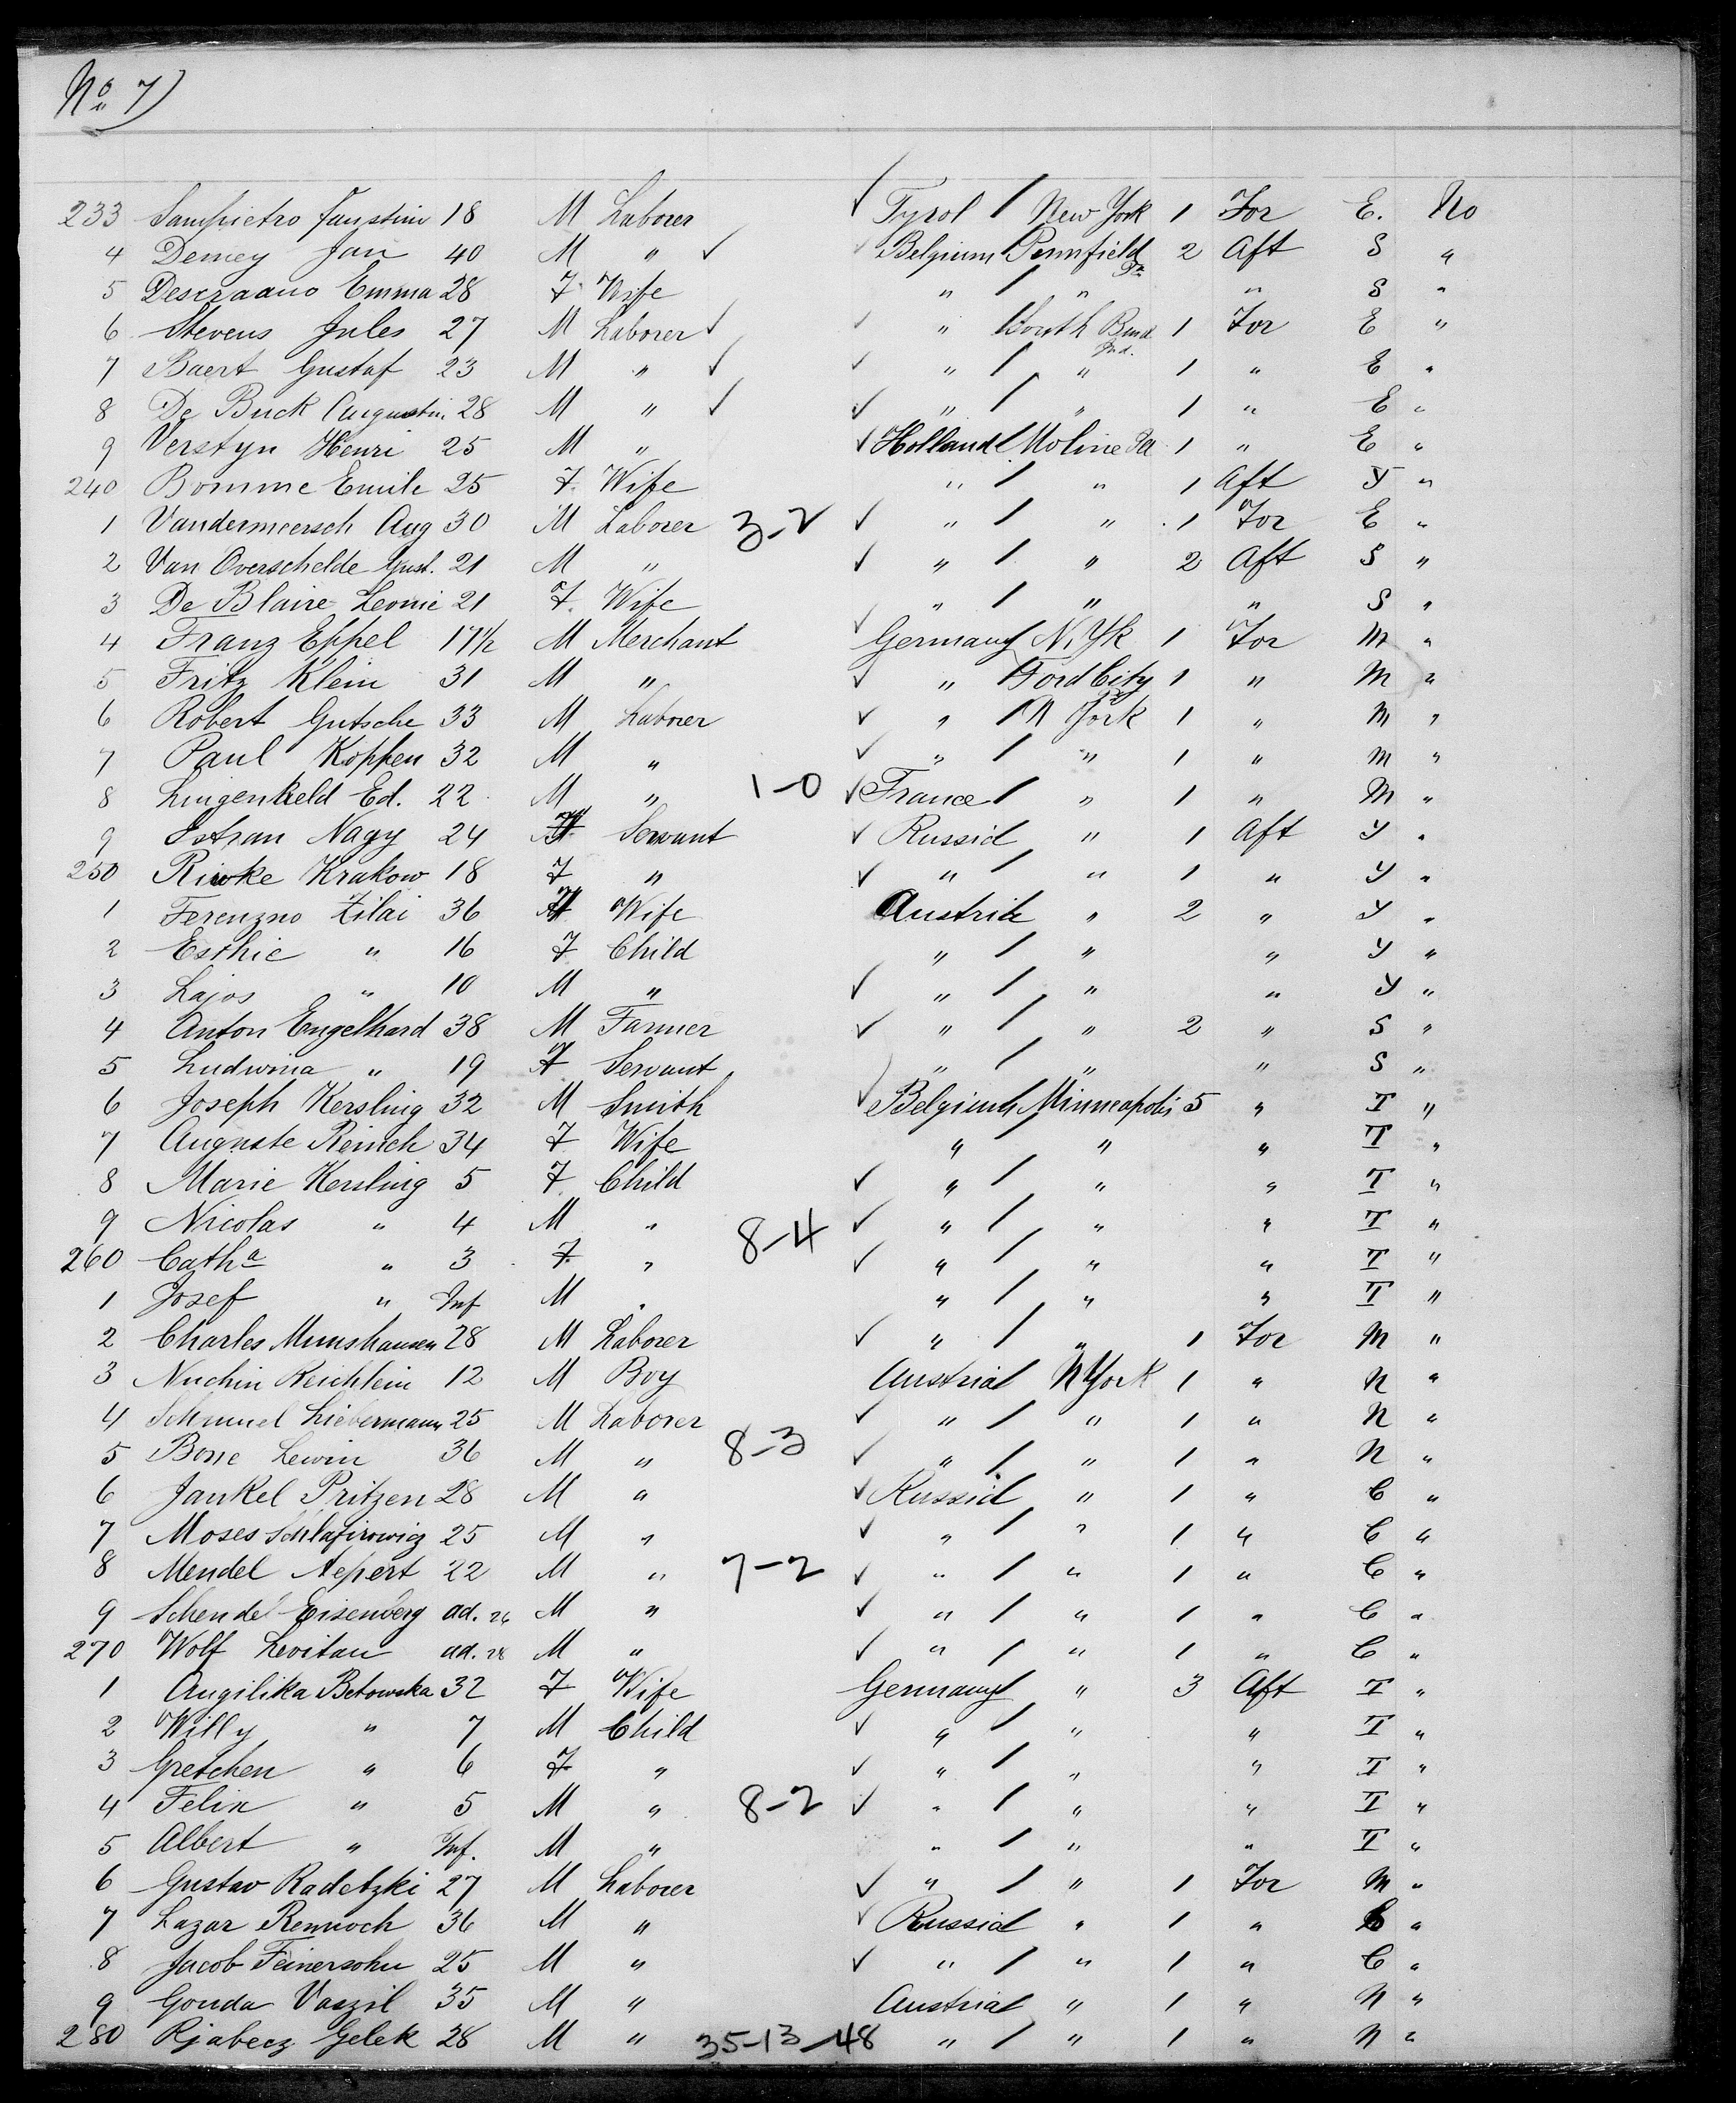 No 7)
233 Sampietro Faustini 18 M Laborer Tyrol / New York 1 For E. No
4 Demey Jan 40 M " Belgium Pennfield Pa 2 Aft S "
5 Emma 28 F Wife " / " " S "
6 Stevens Jules 27 M Laborer " / South Bend Ind. 1 For E "
7 Baert Gustaf 23 M " " / " 1 " E "
8 De Buck Augustin. 28 M " " / " 1 " E "
9 Verstyn Henri 25 M " Holland / Moline 1 " E "
240 Bomme Emile 25 F. Wife " / " 1 Aft Y "
1 Vandermeersch Aug 30 M Laborer 3-2 " / " 1 For E "
2 Van Overschelde Gust. 21 M " " / " 2 Aft S "
3 De Blaire Leonie 21 F. Wife " / " " S "
4 Franz Eppel 17½ M Merchant Germany / N. Yk 1 For M "
5 Fritz Klein 31 M " " / Ford City 1 " M "
6 Robert Gutsche 33 M Laborer " / N York 1 " M "
7 Paul Koppen 32 M " " / " 1 " M "
8 Ed. 22 M " 1-0 France / " 1 " M "
9 Nagy 24 F Servant Russia / " 1 Aft Y "
250 Riwke Krakow 18 F " " / " 1 " Y "
1 Ferenzno Zilai 36 F Wife Austria / " 2 " Y "
2 Esthie " 16 F Child " / " " Y "
3 Lajos " 10 M " " / " " Y "
4 Anton Engelhard 38 M Farmer " / " 2 " S "
5 Ludwina " 19 F Servant " / " " S "
6 Joseph Kersling 32 M Smith Belgium / Minneapolis 5 " T "
7 Auguste Reinch 34 F Wife " " " T "
8 Marie Kersling 5 F. Child " / " " T "
9 Nicolas " 4 M " 8-4 " / " " T "
260 Catha " 3 F. " " / " " T "
1 Josef " Inf M " " / " " T "
2 Charles Munshausen 28 M Laborer " / " 1 For M "
3 Nuchin Reichlein 12 M Boy Austria / N York 1 " N "
4 Schmuel Liebermann 25 M Laborer " / " 1 " N "
5 Lewin 36 M " 8-3 " / " 1 " N "
6 Jankel Pritzen 28 M " Russia / " 1 " C "
7 Moses Schlafirowicz 25 M " " / " 1 " C "
8 Mendel Nepert 22 M " 7-2 " / " 1 " C "
9 Schendel Eisenberg ad. 26 M " " / " 1 " C "
270 Wolf Levitan ad. 28 M " " / " 1 " C "
1 Angilika Betowska 32 F Wife Germany / " 3 Aft T "
2 Willy " 7 M Child " / " " T "
3 Gretchen " 6 F " " / " " T "
4 Felix " 5 M " 8-2 " / " " T "
5 Albert " Inf. M " " / " " T "
6 Gustav Radetzki 27 M Laborer " / " 1 For M "
7 Lazar Rennoch 36 M " Russia / " 1 " C "
8 Jacob Feinersohn 25 M " " / " 1 " C "
9 Gonda Vaszil 35 M " Austria / " 1 " N "
280 Rjabecz Gelek 28 M " 35-13-48 " / " 1 " N "